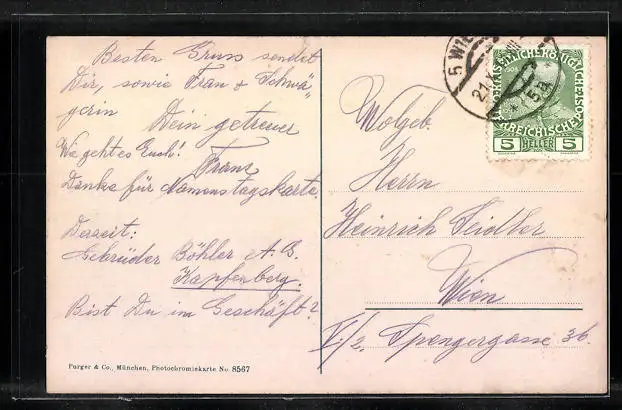 Besten Gruss sendet
Dir, sowie Frau & Schwä-
gerin Dein getreuer
Wie geht es Euch! Franz
Danke für Namenstagskarte.
Derzeit:
Gebrüder Böhler & A. G.
Kapfenberg.
Bist Du im Geschäft?
Purger & Co., München, Photochromiekarte No. 8567
Wolgeb.
Herrn
Heinrich Seidler
Wien
V./2. Spengergasse 36.
5 WIEN
21.
1908
REICHISCHE POST
5 HELLER 5